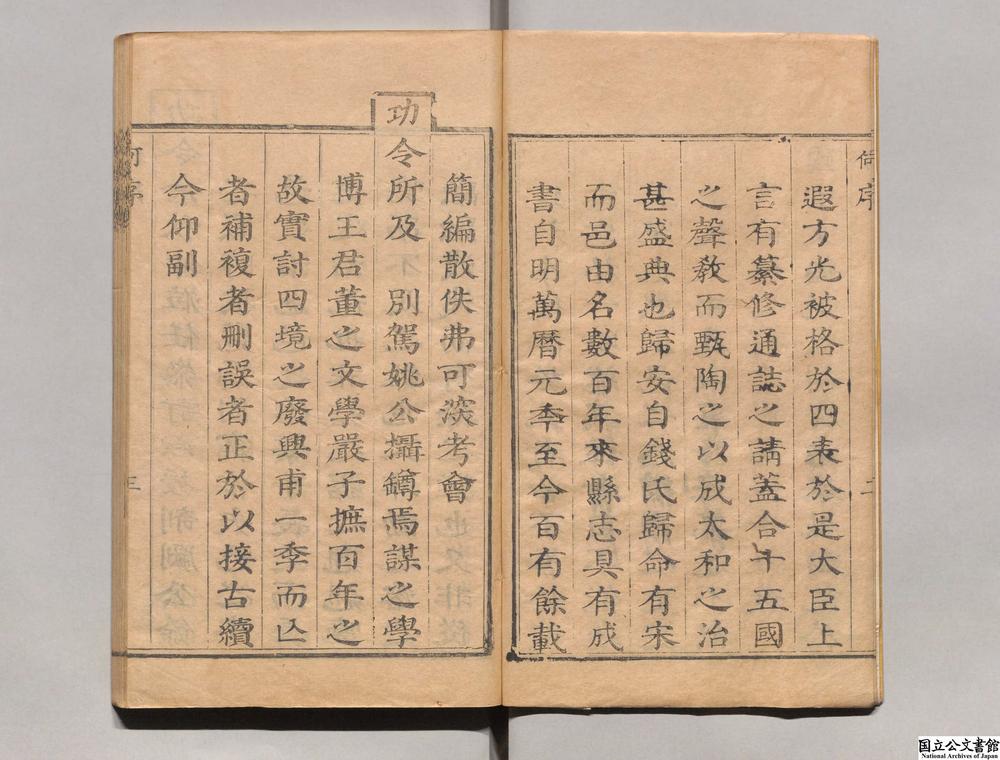 遐方光被格於四表於是大臣上
言有纂修通誌之請蓋合十五國
之聲教而甄陶之以成太和之治
甚盛典也歸安自錢氏歸命有宋
而邑由名數百年來縣志具有成
書自明萬曆元年至今百有餘載
簡編散佚弗可深考會
功令所及 別駕姚公攝篆焉謀之學
博王君董之文學嚴子摭百年之
故實討四境之廢興甫一季而亾
者補複者刪誤者正於以接古續
今仰副
序
三
国立公文書館
National Archives of Japan